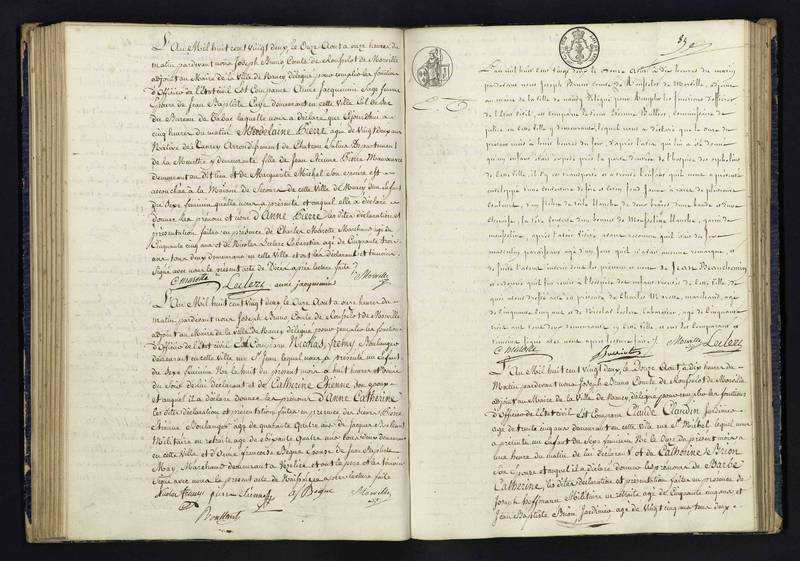 L'An Mil huit cent Vingt deux, le Onze Aout a onze heures du
matin pardevant nous Joseph Bruno Comte de Rouserlot de Morville
adjoint au Maire de la Ville de Nancy délégué pour remplir les fonctions
d'Officier de l'Etat civil Est Comparue Anne Jacquemin Sage femme
Epouse de Jean Baptiste demeurant en cette Ville
du Bureau de laquelle nous a déclaré que aujourd'hui a
cinq heures du matin Madelaine Bierre agée de Vingt deux ans
Native de Arrondissement de Chateau Salins Departement
de la Meurthe y demeurante fille de Jean Bierre Manoeuvre
demeurant au dit lieu et de Marguerite Michel Son epouse est
accouchée a la Maison de Secours de cette Ville de Nancy d'un Enfant
du Sexe feminin qu'elle nous a présenté et auquel elle a déclaré
donner les prénom et nom d'Anne Bierre les dites déclaration et
présentation faites en présence de Charles Marotte Marchand agé de
Cinquante cinq ans et de Nicolas Leclerc agé de Cinquante trois
ans tous deux demeurant en cette Ville et ont les déclarant et témoins
Signé avec nous le présent acte de Naissance après lecture faite
C marotte Leclerc anne jacquemin Morville
L'An Mil huit cent Vingt deux le Onze Aout a onze heures du
matin pardevant nous Joseph Bruno Comte de Rouserlot de Morville
adjoint au Maire de la Ville de Nancy délégué pour remplir les fonctions
d'Officier de l'Etat civil Est Comparu Nicolas Boulanger
demeurant en cette Ville rue St Jean lequel nous a présenté un Enfant
du Sexe feminin Né le huit du présent mois a huit heures et demie
du Soir de lui déclarant et de Catherine Etienne Son epouse
et auquel il a déclaré donner les prénoms d'Anne Catherine
les dites déclaration et présentation faites en présence des Sieurs Pierre
Etienne Boulanger agé de quarante quatre ans et Jacques
Militaire en retraite agé de Soixante quatre ans tous deux demeurant
en cette Ville et Dame francoise Begue Epouse de Jean Baptiste
May, Marchand demeurant a et ont le pere et les témoins
Signé avec nous le présent acte de Naissance après lecture faite
Nicolas pierre Etienne Begue Morville
83
L'an mil huit cent vingt deux le onze Aout à dix heures du matin
pardevant nous Joseph Bruno comte de Rouserlot de Morville, adjoint
au maire de la ville de nancy délégué pour remplir les fonctions d'officier
de l'Etat civil, est comparu le sieur Etienne commissaire de
police en cette ville y demeurant, lequel nous a déclaré que le onze du
présent mois à heures du soir, d'après l'avis qui lui a été donné
qu'un enfant était exposé près la porte d'entrée de l'hospice des orphelins
de cette ville, il s'y est transporté et a trouvé l'enfant qu'il nous a présenté
couleurs, d'un fichu de toile blanche de deux d'une bande et d'une
chemise, la tête couverte d'un bonnet de Mousseline blanche, garni de
mousseline, après l'avoir visité avons reconnu qu'il était du Sexe
masculin paraissant agé d'un jour qu'il n'avait aucune remarque, et
de suite l'avons inscrit sous les prénom et nom de Jean Beauchemin
et ordonné qu'il fut remis à l'hospice des enfants trouvés de cette ville. De
quoi avons dressé acte en présence de Charles Marotte, marchand, agé
de cinquante cinq ans et de Nicolas Leclerc agé de cinquante
trois ans tous deux demeurant en cette ville et ont les comparant et
témoins signé avec nous après lecture faite.
C marotte Morville Leclerc
L'An Mil huit cent Vingt deux, le Douze Aout a dix heures du
Matin pardevant nous Joseph Bruno Comte de Rouserlot de Morville
adjoint au Maire de la Ville de Nancy, délégué pour remplir les fonctions
d'Officier de l'Etat civil Est Comparu Claude Claudin Jardinier
agé de trente cinq ans demeurant en cette Ville rue St Michel lequel nous
a présenté un Enfant du Sexe feminin Né le Onze du présent mois a
une heure du matin de lui déclarant et de Catherine Brion
Son Epouse et auquel il a déclaré donner les prénoms de Barbe
Catherine, les dites déclaration et présentation faites en présence de
Joseph Hoffmann Militaire en retraite agé de Cinquante cinq ans et
Jean Baptiste Brion, Jardinier agé de Vingt cinq ans tous deux